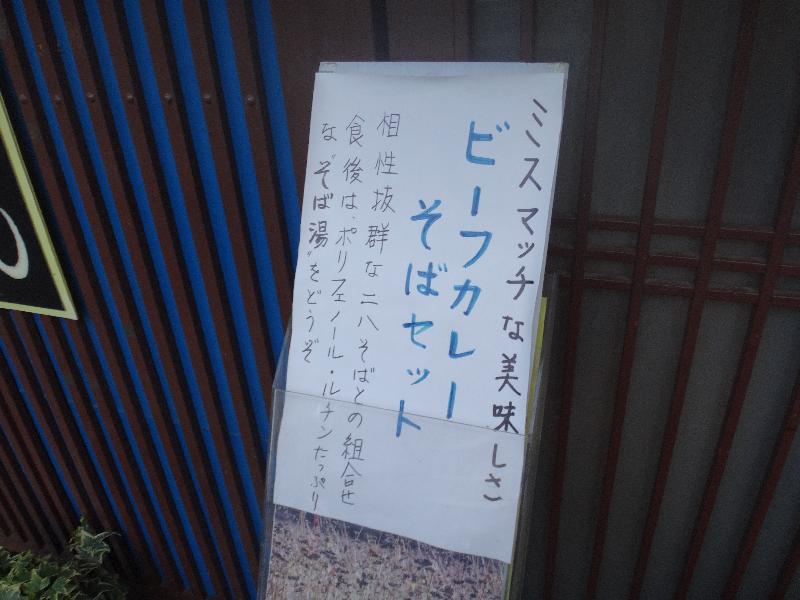 ミスマッチな美味しさ
ビーフカレー
そばセット
相性抜群な二八そばとの組合せ
食後は、ポリフェノール・ルチンたっぷり
な“そば湯”をどうぞ